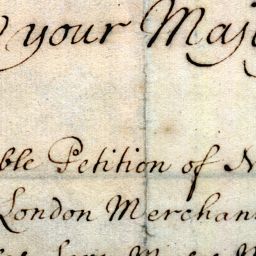 your Maj
ble Petition of N
London Merchan